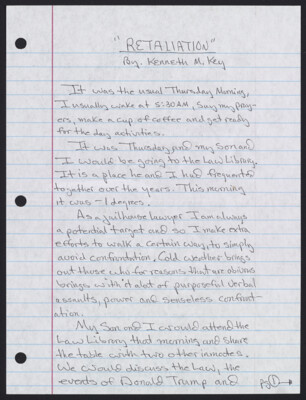 "RETALIATION"
By. Kenneth M. Key
It was the usual Thursday Morning,
I usually wake at 5:30AM, Say my pray-
ers, make a cup of coffee and get ready
for the day activities.
It was Thursday and my Son and
I would be going to the Law Library.
It is a place he and I had frequented
together over the years. This morning
it was -1 degrees.
As a jailhouse lawyer I am always
a potential target and so I make extra
efforts to walk a certain way, to simply
avoid confrontation. Cold weather brings
out those who for reasons that are obvious
brings with it alot of purposeful verbal
assaults, power and senseless confront-
ation.
My Son and I would attend the
Law Library that morning and share
the table with two other inmates.
We would discuss the Law, the
events of Donald Trump and
pg 1